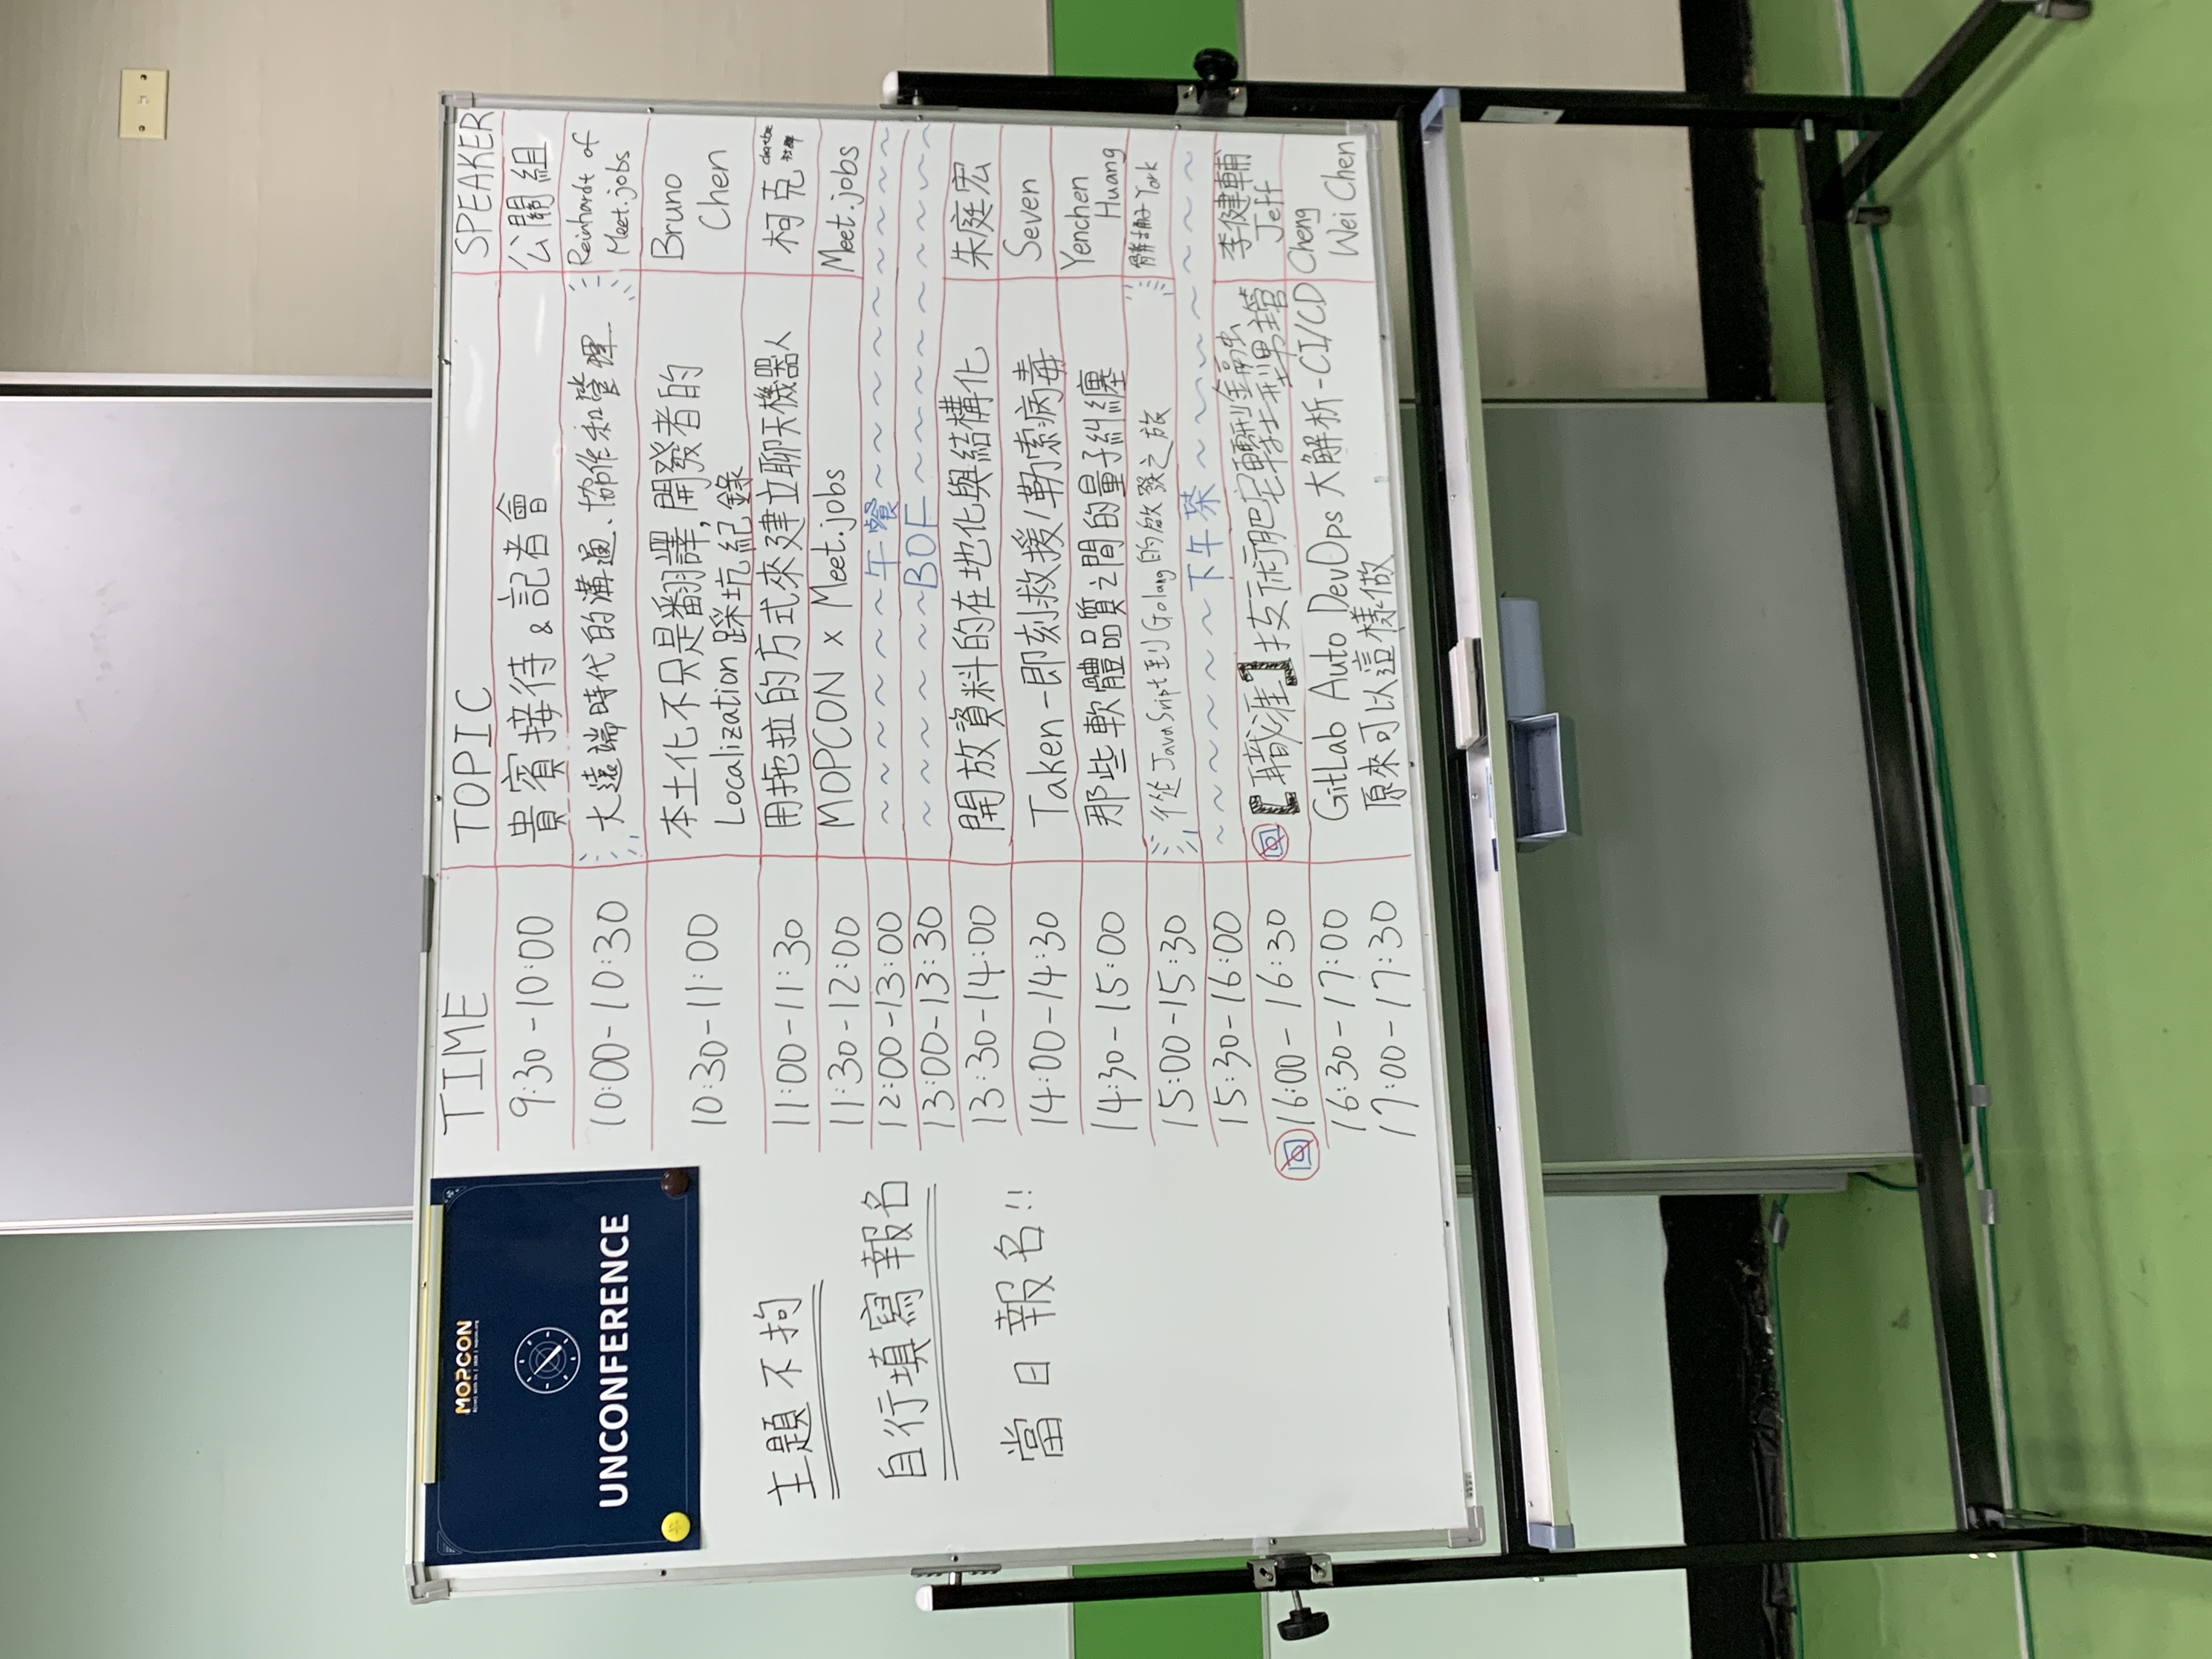 MOPCON
UNCONFERENCE
主題不拘
自行填寫報名
當日報名!!
TIME TOPIC SPEAKER
9:30-10:00 貴賓接待 & 記者會 公關組
10:00-10:30 大遠端時代的溝通、協作和管理 Reinhardt of
Meet.jobs
10:30-11:00 本土化不只是翻譯,開發者的 Bruno
Localization 踩坑紀錄 Chen
11:00-11:30 用拖拉的方式來建立聊天機器人 柯克
11:30-12:00 MOPCON x Meet.jobs Meet.jobs
12:00-13:00 ~~~~~~~午餐~~~~~~~~~~
13:00-13:30 ~~~~~~~BOF~~~~~~~~~~
13:30-14:00 開放資料的在地化與結構化 朱庭宏
14:00-14:30 Taken-即刻救援/勒索病毒 Seven
14:30-15:00 那些軟體品質之間的量子糾纏 Yenchen
Huang
15:00-15:30 從JavaSript到Golang的啟發之旅 York
15:30-16:00 ~~~~~~~下午茶~~~~~~~~~
16:00-16:30 【職涯】技術肥宅轉型金融 李健輔
型男主管 Jeff
16:30-17:00 GitLab Auto DevOps 大解析-CI/CD Cheng
17:00-17:30 原來可以這樣做 Wei Chen